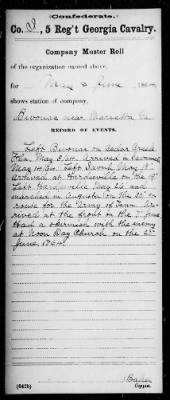 (Confederate.)
Co. B, 5 Reg't Georgia Cavalry.
Company Muster Roll
of the organization named above,
for May & June, 1864.
shows station of company,
Bivouac near Marietta Ga
RECORD OF EVENTS.
Left Bivouac on Cedar Creek
Fla, May 8/64. Arrived in Savannah
May 14/64. Left Savh May 18"
Arrived at Hardeeville on the 19"
Left Hardeeville May 26 and
marched in Augusta on the
route for the Army of Tenn. Ar-
rived at the front on the 7" June
Had a skirmish with the enemy
at Noon Day Church on the
June 1864
(642b)
Baker
Copyist.